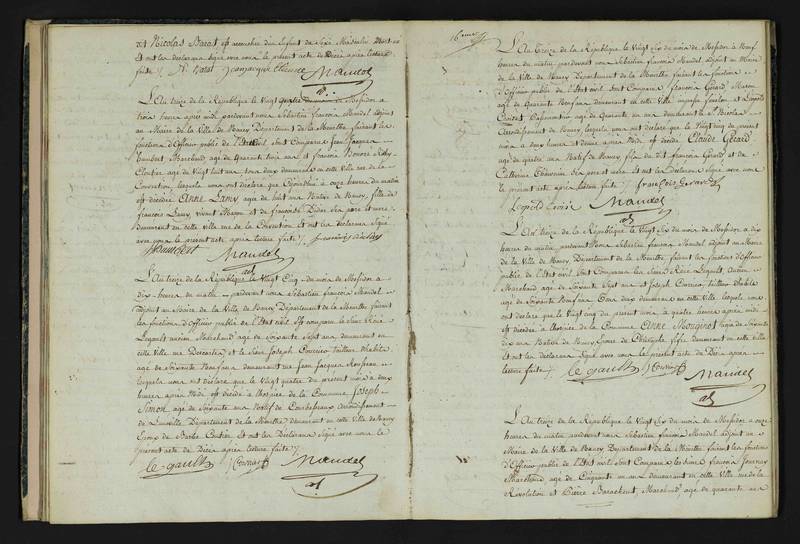 dit Nicolas Barat est accoucher d'un Enfant du Sexe
Et ont les déclarans Signé avec nous le présent acte de Décès après lecture
faite / Jean jacque Etienne Mandel
L'An treize de la République le Vingt quatre du mois de Messidor à
trois heures après midi pardevant nous Sébastien François Mandel adjoint
au Maire de la Ville de Nancy Département de la Meurthe faisant les
fonctions d'Officier public de l'Etat civil, sont Comparus Jean Jacques
Humbert Marchand agé de quarante trois ans et françois
Cloutier agé de Vingt huit ans tous deux demeurans en cette ville rue de la
Convention, lesquels nous ont déclaré que à onze heures du matin
est décédée Anne Lamy agée de huit ans Native de Nancy, fille de
françois Lamy, vivant Maçon et de françoise Didier Ses père et mère
demeurant en cette ville rue de la Convention et ont les déclarans Signé
avec nous le présent acte après lecture faite /
Humbert Mandel
L'An treize de la République le Vingt Cinq du mois de Messidor à
dix heures du matin pardevant nous Sébastien françois Mandel
adjoint au Maire de la Ville de Nancy Département de la Meurthe faisant
les fonctions d'Officier public de l'Etat civil Est comparu le Sieur
Legault ancien Marchand agé de soixante Sept ans demeurant en
cette Ville rue Descartes et le Sieur Joseph Tailleur d'habits
agé de soixante Dix ans demeurant rue Jean Jacques Rousseau
lesquels nous ont déclaré que le Vingt quatre du présent mois à deux
heures après Midi est décédé à l'hospice de la Commune Joseph
Simon, agé de soixante ans Natif de Arrondissement
de Lunéville Département de la Meurthe demeurant en cette Ville de Nancy
Epoux de Barbe et ont les Déclarans Signé avec nous le
présent acte de Décès après lecture faite /
le gault Mandel
L'An treize de la République le Vingt Six du mois de Messidor à Neuf
heures du matin pardevant nous Sébastien françois Mandel adjoint au Maire
de la Ville de Nancy Département de la Meurthe faisant les fonctions
d'Officier public de l'Etat civil Sont Comparus François Gérard, Maçon
agé de quarante Neuf ans demeurant en cette Ville et Léopold
agé de quarante un ans demeurant à St Nicolas
Arrondissement de Nancy lesquels nous ont déclaré que le Vingt cinq du présent
mois à deux heures et demie après Midi est décédé Claude Gérard
agé de quatre ans Natif de Nancy fils du dit françois Gérard et de
Catherine Ses père et mère et ont les Déclarans Signé avec nous
le présent acte après lecture faite / François Gerard
Léopold Mandel
L'An treize de la République le Vingt Six du mois de Messidor à dix
heures du matin, pardevant Nous Sébastien françois Mandel adjoint au Maire
de la Ville de Nancy, Département de la Meurthe faisant les fonctions d'Officier
public de l'Etat civil Sont Comparus les Sieurs Legault, Ancien
Marchand agé de Soixante Sept ans et Joseph tailleur d'habits
agé de Soixante Dix ans Tous deux demeurans en cette Ville lesquels nous
ont déclaré que le Vingt cinq du présent mois à quatre heures après midi
est décédée à l'hospice de la Commune Anne Mougenot agée de soixante
dix ans Native de Nancy, Veuve de Christophe demeurant en cette Ville
Et ont les déclarans Signé avec nous le présent acte de Décès après
lecture faite / le gault Mandel
L'An treize de la République le Vingt Six du mois de Messidor à onze
heures du matin pardevant nous Sébastien françois Mandel adjoint au
Maire de la Ville de Nancy Département de la Meurthe faisant les fonctions
d'Officier public de l'Etat civil Sont Comparus les Sieurs françois
Marchand, agé de Cinquante un ans demeurant en cette Ville rue de la
Révolution et Pierre Marchand agé de quarante ans